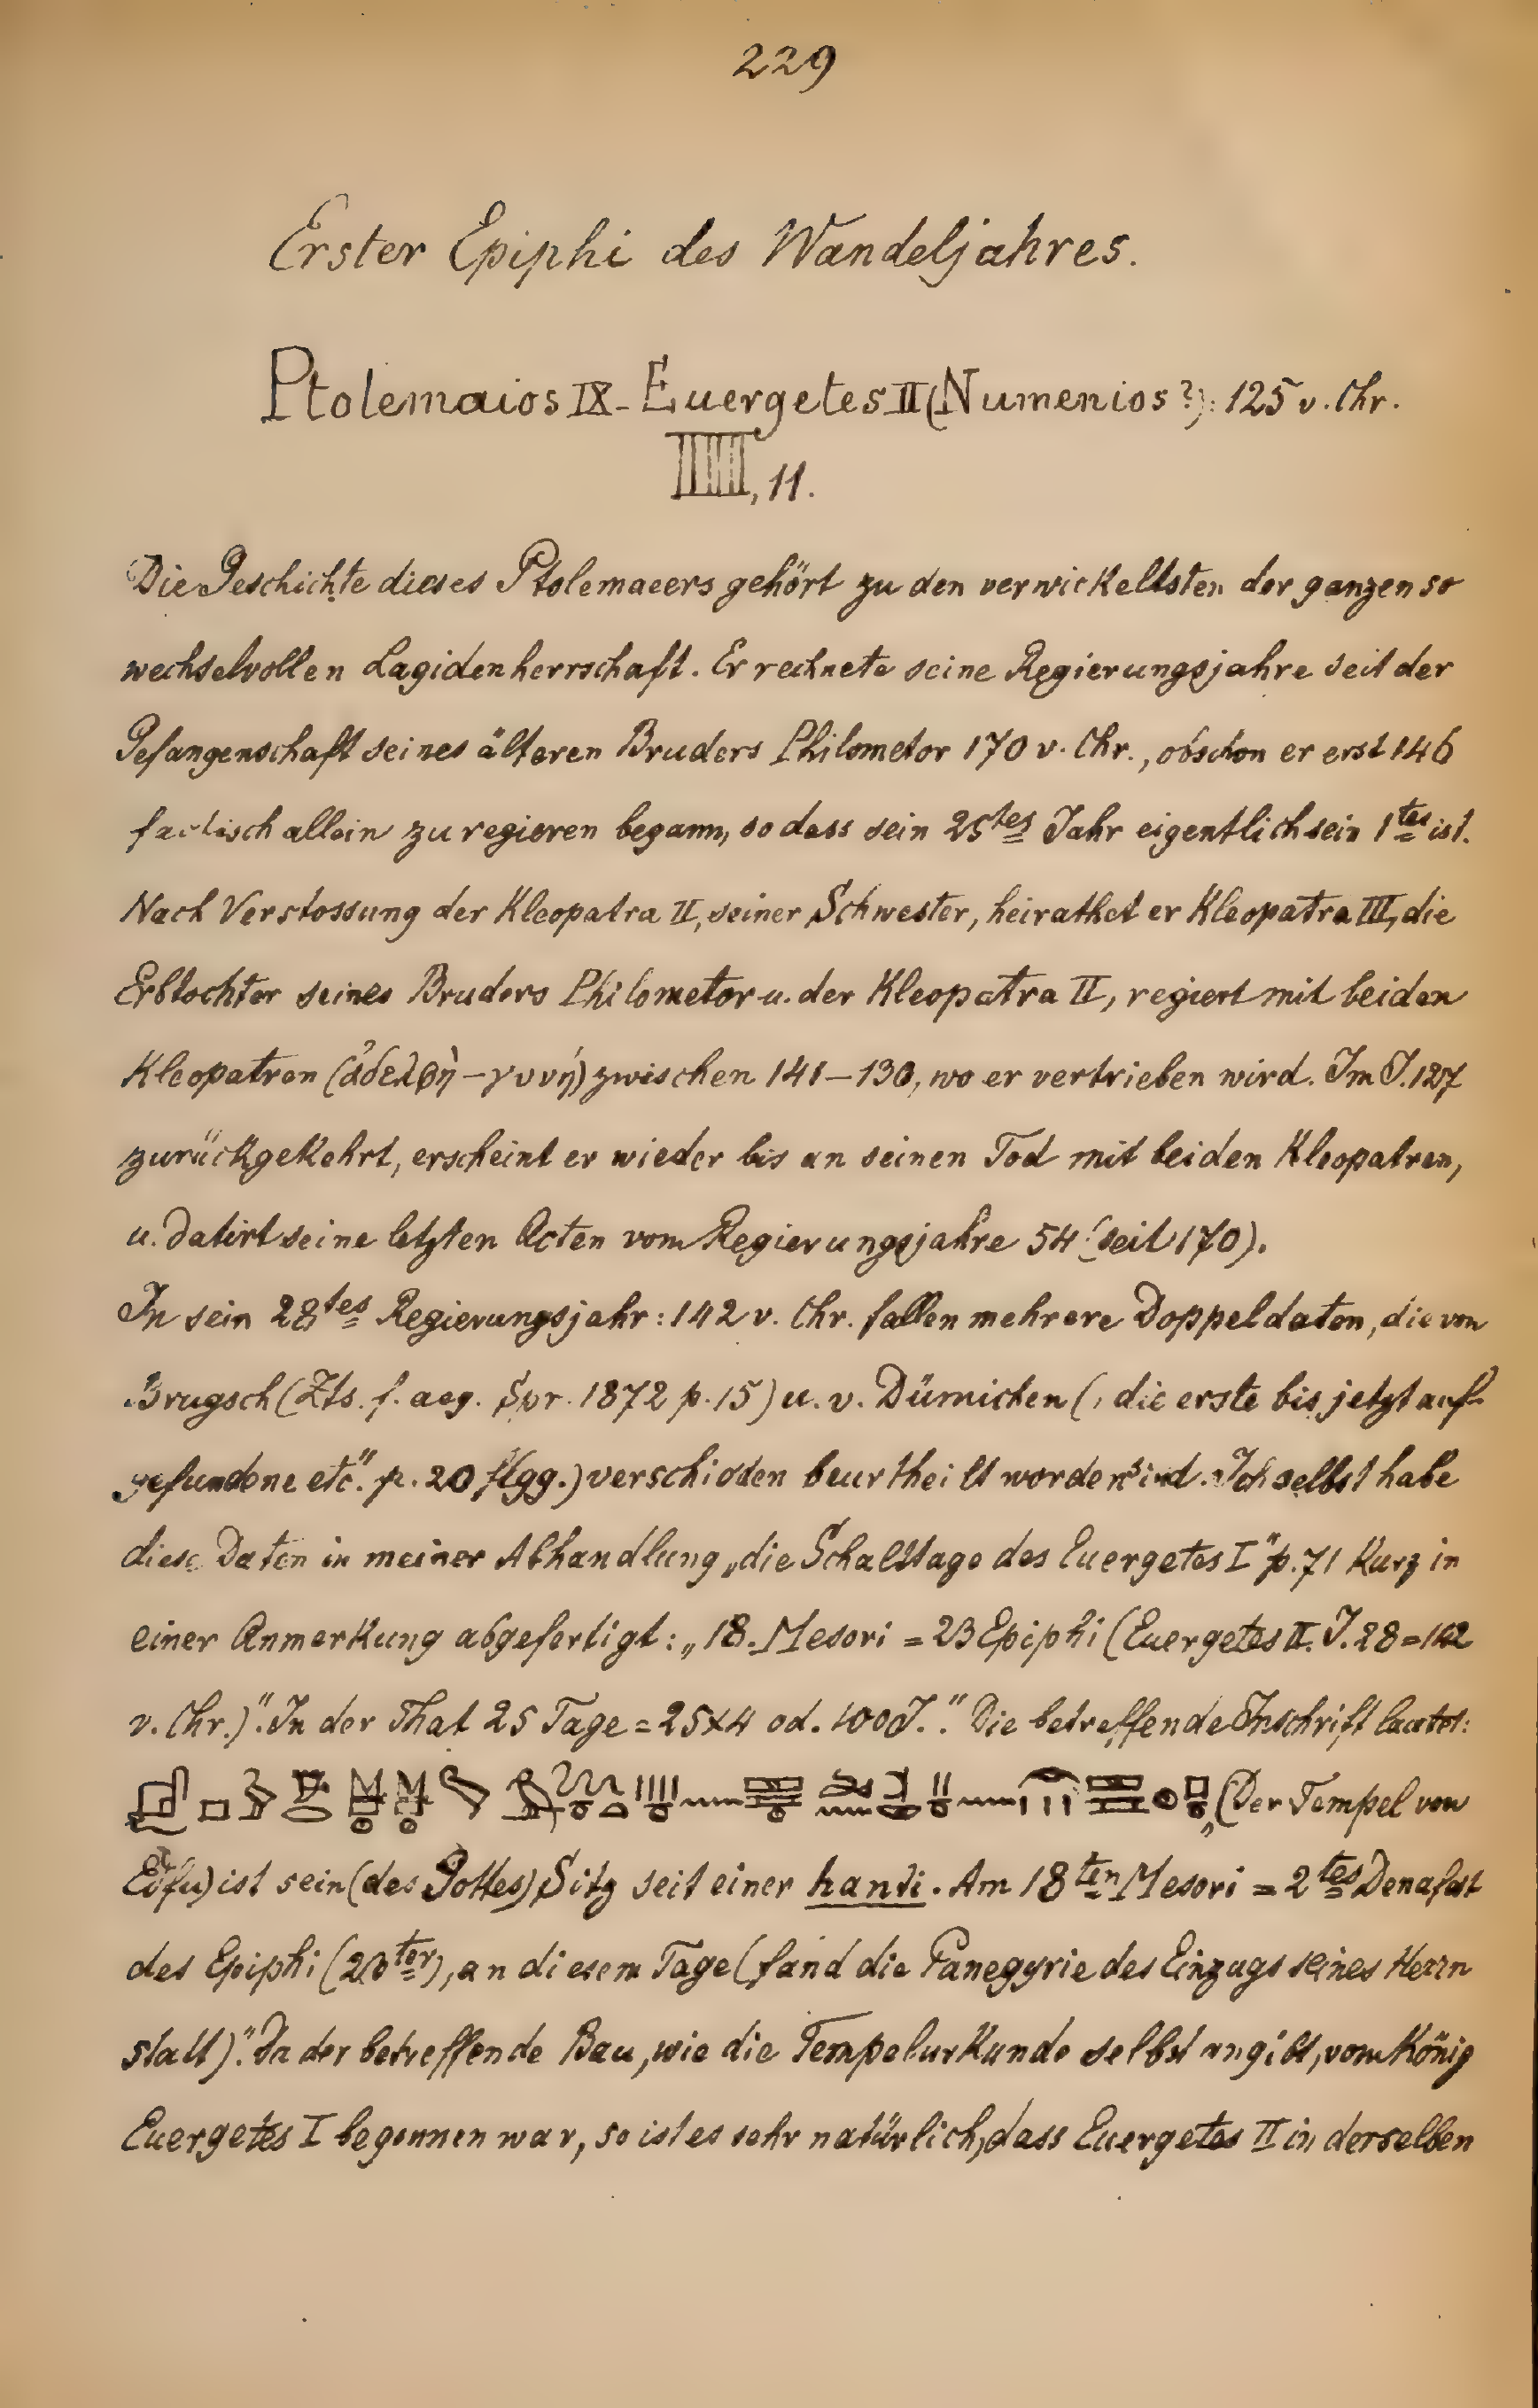 229
Erster Epiphi des Wandeljahres.
Ptolemaios IX - Euergetes II (Numenios?): 125 v. Chr.
, 11.
Die Geschichte dieses Ptolemaeers gehört zu den verwickeltsten der ganzen so
wechselvollen Lagidenherrschaft. Er rechnete seine Regierungsjahre seit der
Gefangenschaft seines älteren Bruders Philometor 170 v. Chr., obschon er erst 146
factisch allein zu regieren begann, so dass sein 25tes Jahr eigentlich sein 1tes ist.
Nach Verstossung der Kleopatra II, seiner Schwester, heirathet er Kleopatra III, die
Erbtochter seines Bruders Philometor u. der Kleopatra II, regiert mit beiden
Kleopatren (ἀδελφὴ – γυνή) zwischen 141–130, wo er vertrieben wird. Im J. 127
zurückgekehrt, erscheint er wieder bis an seinen Tod mit beiden Kleopatren,
u. datirt seine letzten Acten vom Regierungsjahre 54 (seit 170).
In sein 28tes Regierungsjahr: 142 v. Chr. fallen mehrere Doppeldaten, die von
Brugsch (Zts. f. aeg. Spr. 1872 p. 15) u. v. Dümichen („die erste bis jetzt auf-
gefundene etc." p. 20 flgg.) verschieden beurtheilt worden sind. Ich selbst habe
diese Daten in meiner Abhandlung „die Schalttage des Euergetes I" p. 71 kurz in
einer Anmerkung abgefertigt: „18. Mesori = 23 Epiphi (Euergetes II. J. 28 = 142
v. Chr.)". In der That 25 Tage = 25x4 od. 100 J.." Die betreffende Inschrift lautet:
„(Der Tempel von
Edfu) ist sein (des Gottes) Sitz seit einer hanti. Am 18ten Mesori = 2tes Denafest
des Epiphi (23ter), an diesem Tage (fand die Panegyrie des Einzugs seines Herrn
statt)". Da der betreffende Bau, wie die Tempelurkunde selbst angibt, vom König
Euergetes I begonnen war, so ist es sehr natürlich, dass Euergetes II in derselben